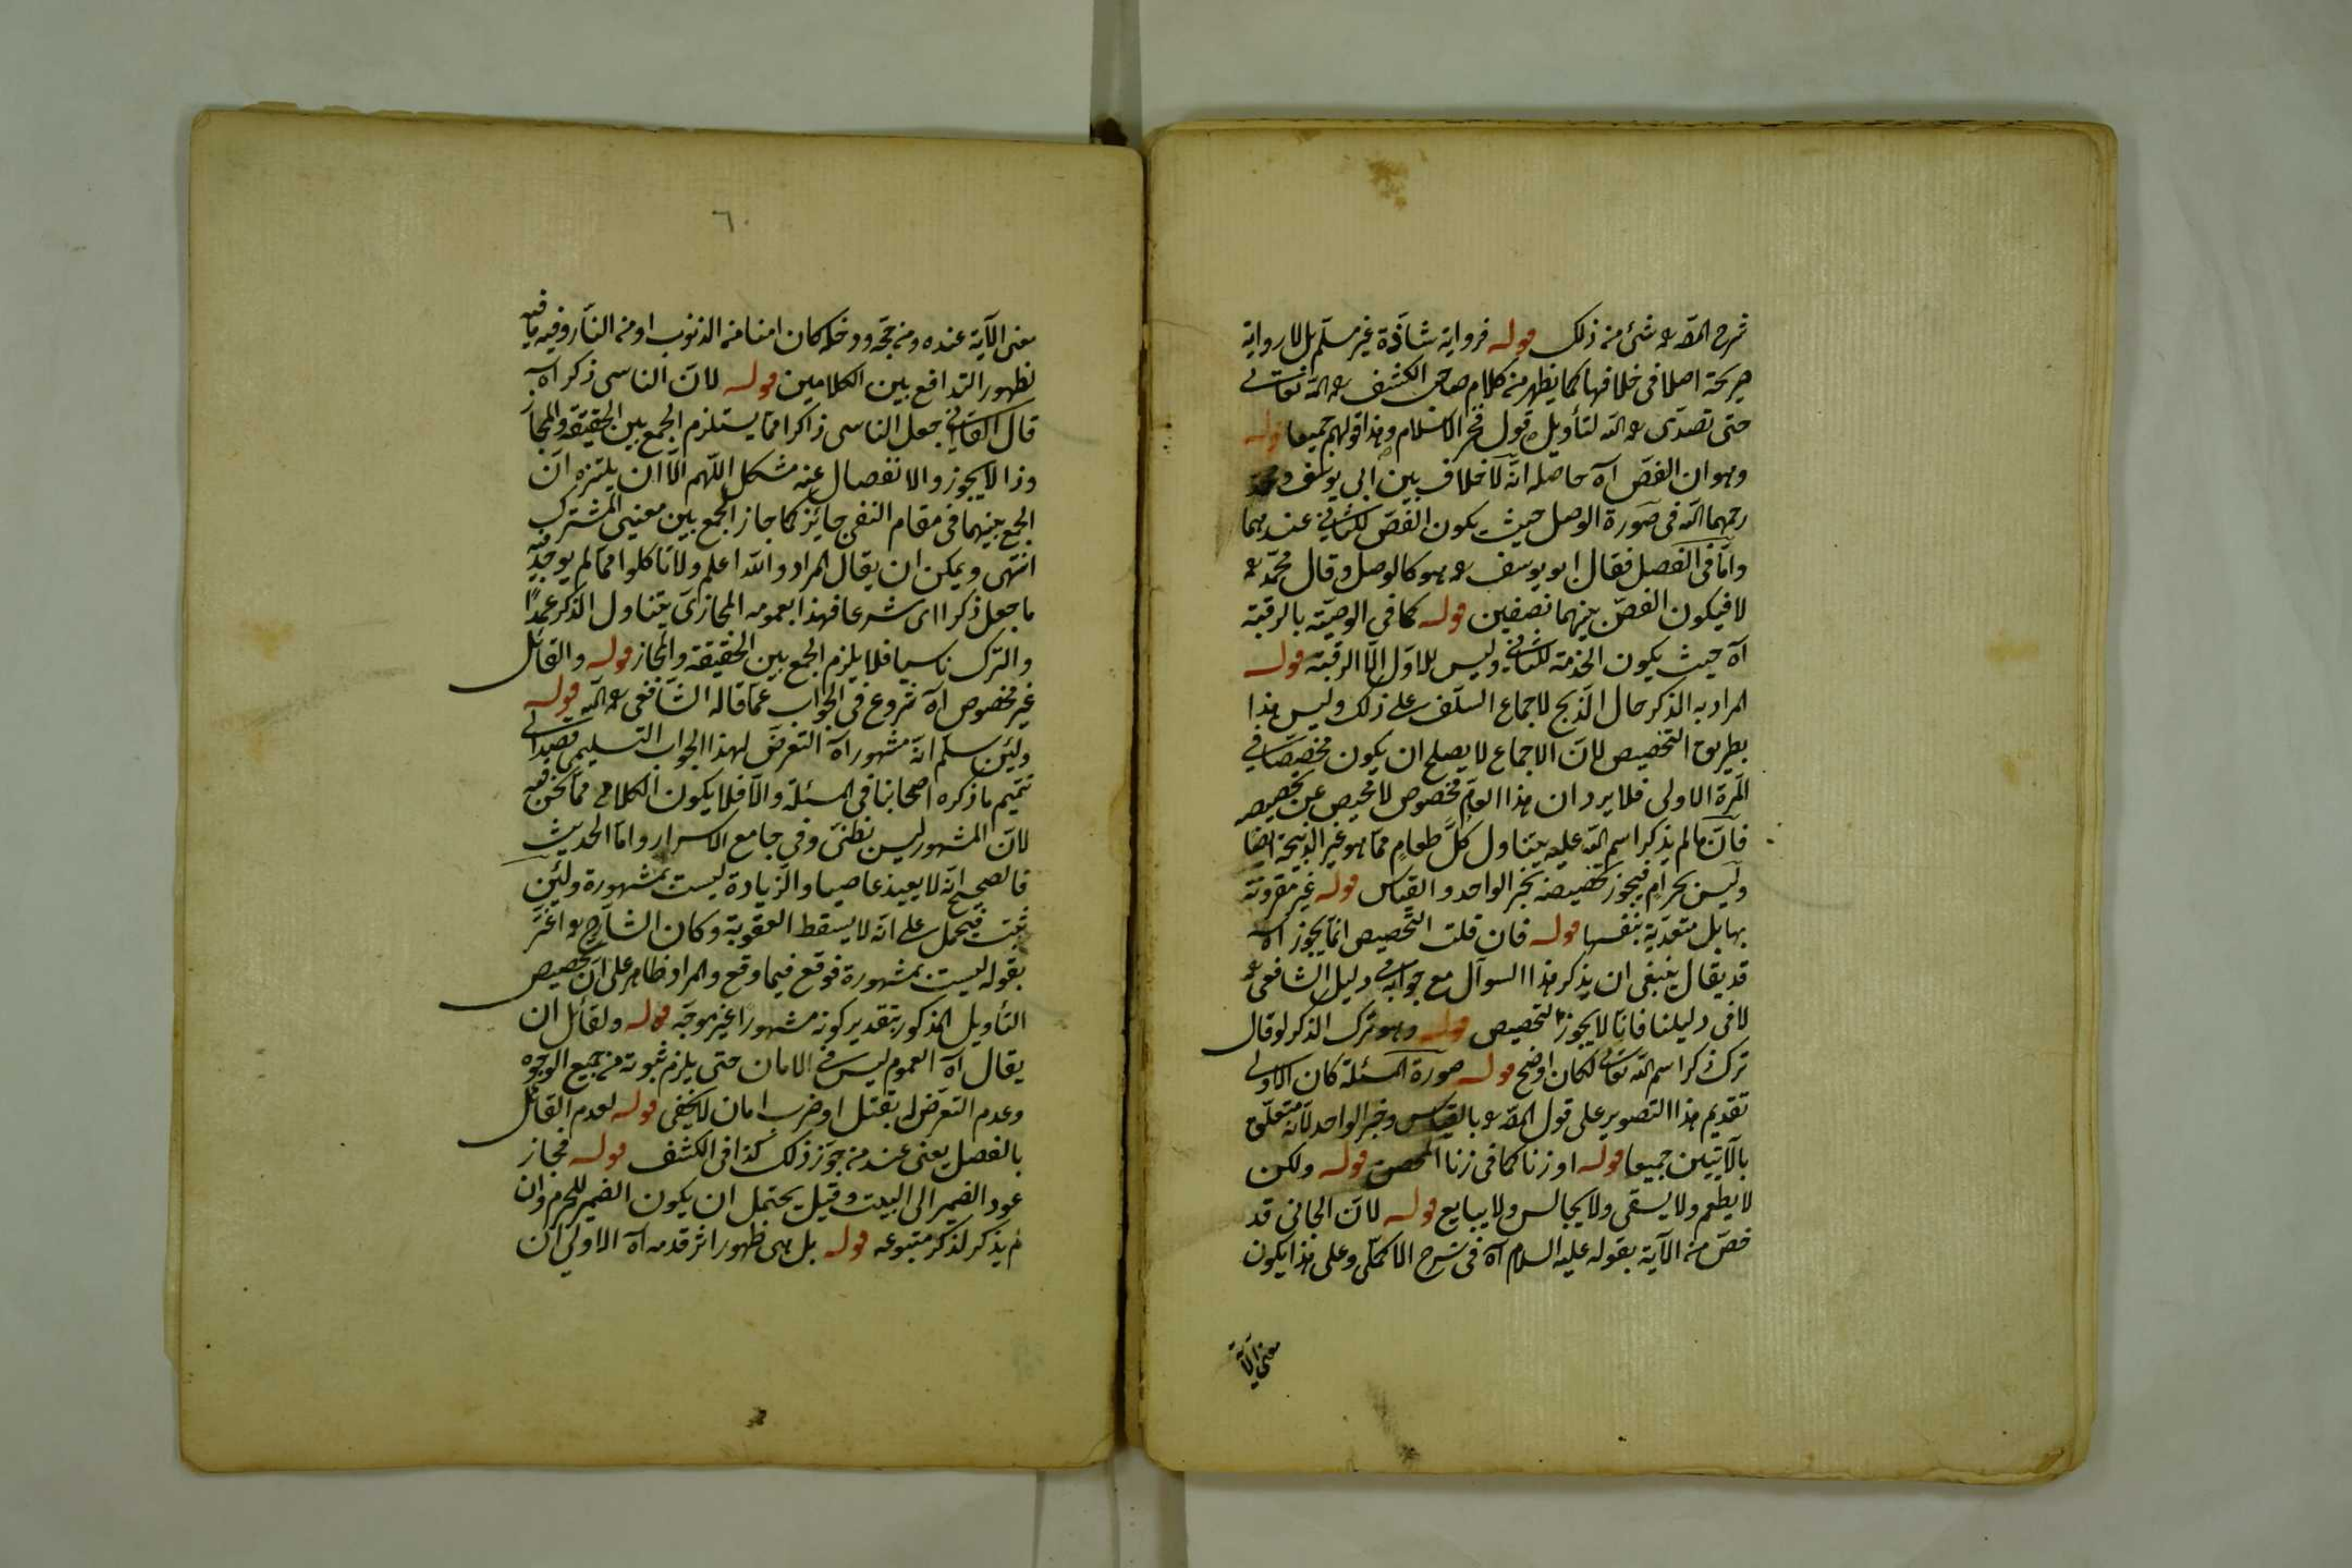 شرح المص ره شئ من ذلك قوله فرواية شاذة غير مسلم بل لا رواية
صريحة اصلا في خلافها كما يظهر من كلام صاحب الكشف ره الله تعالى
حتى تصدى ره الله لتأويل قول فخر الاسلام وهذا قولهم جميعا قوله
وهو ان الفص آه حاصله انه لا خلاف بين ابى يوسف ومحمد
رحمهما الله فى صورة الوصل حيث يكون الفص للثاني عندهما
واما في الفصل فقال ابو يوسف ره هو كالوصل وقال محمد ره
لا فيكون الفص بينهما نصفين قوله كما في الوصية بالرقبة
آه حيث يكون الخدمة للثاني وليس للاول الا الرقبة قوله
المراد به الذكر حال الذبح لاجماع السلف على ذلك وليس هذا
بطريق التخصيص لان الاجماع لا يصلح ان يكون مخصصا في
المرة الاولى فلا يرد ان هذا العام مخصوص لا محيص عن تخصيصه
فان ما لم يذكر اسم الله عليه يتناول كل طعام مما هو غير الذبيحة ايضا
وليس بحرام فيجوز تخصيصه بخبر الواحد والقياس قوله غير مقرونة
بها بل متعدية بنفسها قوله فان قلت التخصيص انما يجوز آه
قد يقال ينبغي ان يذكر هذا السوآل مع جوابه في دليل الشافعي ره
لا في دليلنا فانا لا يجوز التخصيص قوله وهو ترك الذكر لو قال
ترك ذكر اسم الله تعالى لكان اوضح قوله صورة المسئلة كان الاولى
تقديم هذا التصوير على قول المص ره بالقياس وخبر الواحد لانه متعلق
بالآيتين جميعا قوله او زنا كما في زنا المحصن قوله ولكن
لا يطعم ولا يسقى ولا يجالس ولا يبايع قوله لان الجاني قد
خص من الآية بقوله عليه السلام آه في شرح الاكملي وعلى هذا يكون
معنى الآية
٦٠
معنى الآية عنده ومن حجه ودخله كان امنا من الذنوب او من النار وفيه ما فيه
لظهور التدافع بين الكلامين قوله لان الناسي ذكر آه
قال القاآني جعل الناسي ذاكرا مما يستلزم الجمع بين الحقيقة والمجاز
وذا لا يجوز والانفصال عنه مشكل اللهم الا ان يلتزم ان
الجمع بينهما في مقام النفي جايز كما جاز الجمع بين معنيى المشترك
انتهى ويمكن ان يقال المراد والله اعلم ولا تاكلوا مما لم يوجد فيه
ما جعل ذكرا اى شرعا فهذا بعمومه المجازي يتناول الذكر عمدا
والترك ناسيا فلا يلزم الجمع بين الحقيقة والمجاز قوله والقائل
غير مخصوص آه شروع في الجواب عما قاله الشافعي ره الله قوله
ولئن سلم انه مشهور آه التعرض لهذا الجواب التسليمي قصدا الى
تتميم ما ذكره اصحابنا في المسئلة والا فلا يكون الكلام مما نحن فيه
لان المشهور ليس بظني وفي جامع الاسرار واما الحديث
فالصحيح انه لا يعيذ عاصيا والزيادة ليست بمشهورة ولئن
ثبت فيحمل على انه لا يسقط العقوبة وكان الشارح ره اغتر
بقوله ليست بمشهورة فوقع فيما وقع والمراد ظاهر على ان تخصيص
التأويل المذكور بتقدير كونه مشهورا غير موجه قوله ولقائل ان
يقال آه العموم ليس في الامان حتى يلزم ثبوته من جميع الوجوه
وعدم التعرض له بقتل او ضرب امان لا يخفى قوله لعدم القائل
بالفصل يعنى عند من جوز ذلك كذا في الكشف قوله فمجاز
عود الضمير الى البيت وقيل يحتمل ان يكون الضمير للحرم وان
لم يذكر لذكر متبوعه قوله بل هي ظهور اثر قدمه آه الاولى ان